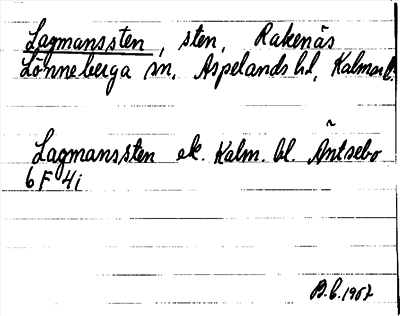 Lagmanssten, sten, Rakenäs
Lönneberga sn, Aspelands hd, Kalmar l.
Lagmanssten ek. Kalm. bl. Äntsebo
6 F 4i
B.C. 1967